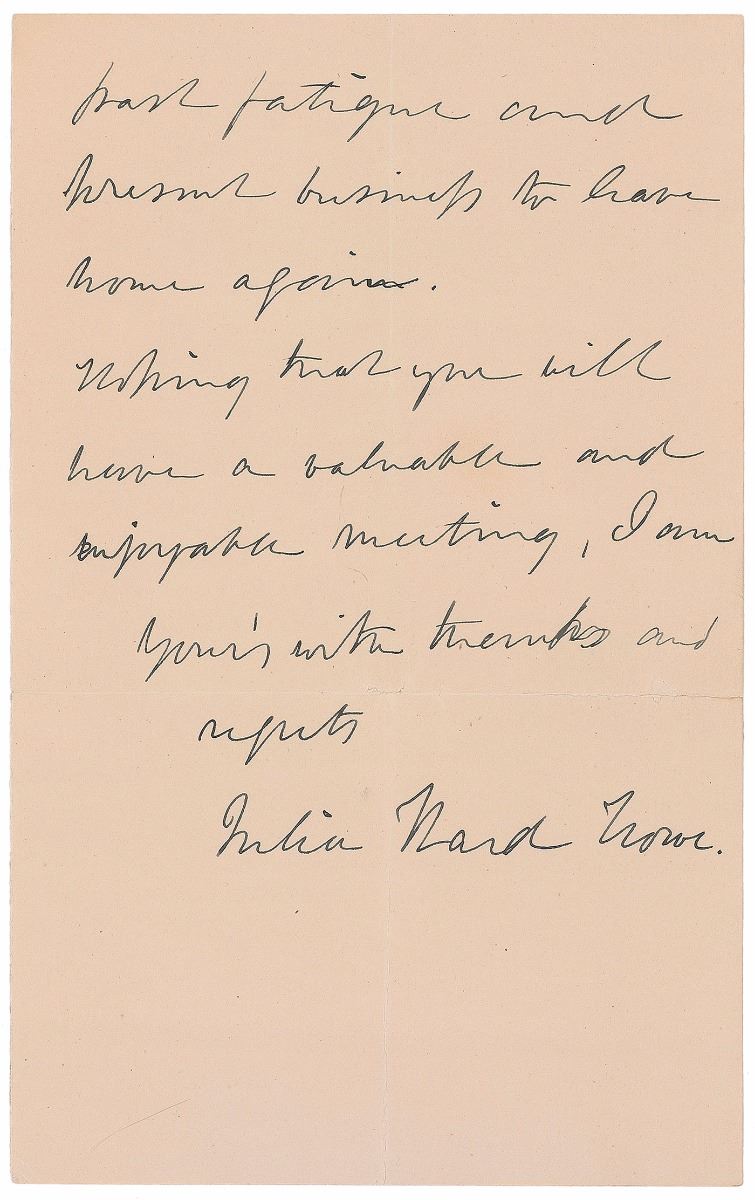 past fatigue and
present business to leave
home again.
Hoping that you will
have a valuable and
enjoyable meeting, I am
Your's with thanks and
regrets
Julia Ward Howe.